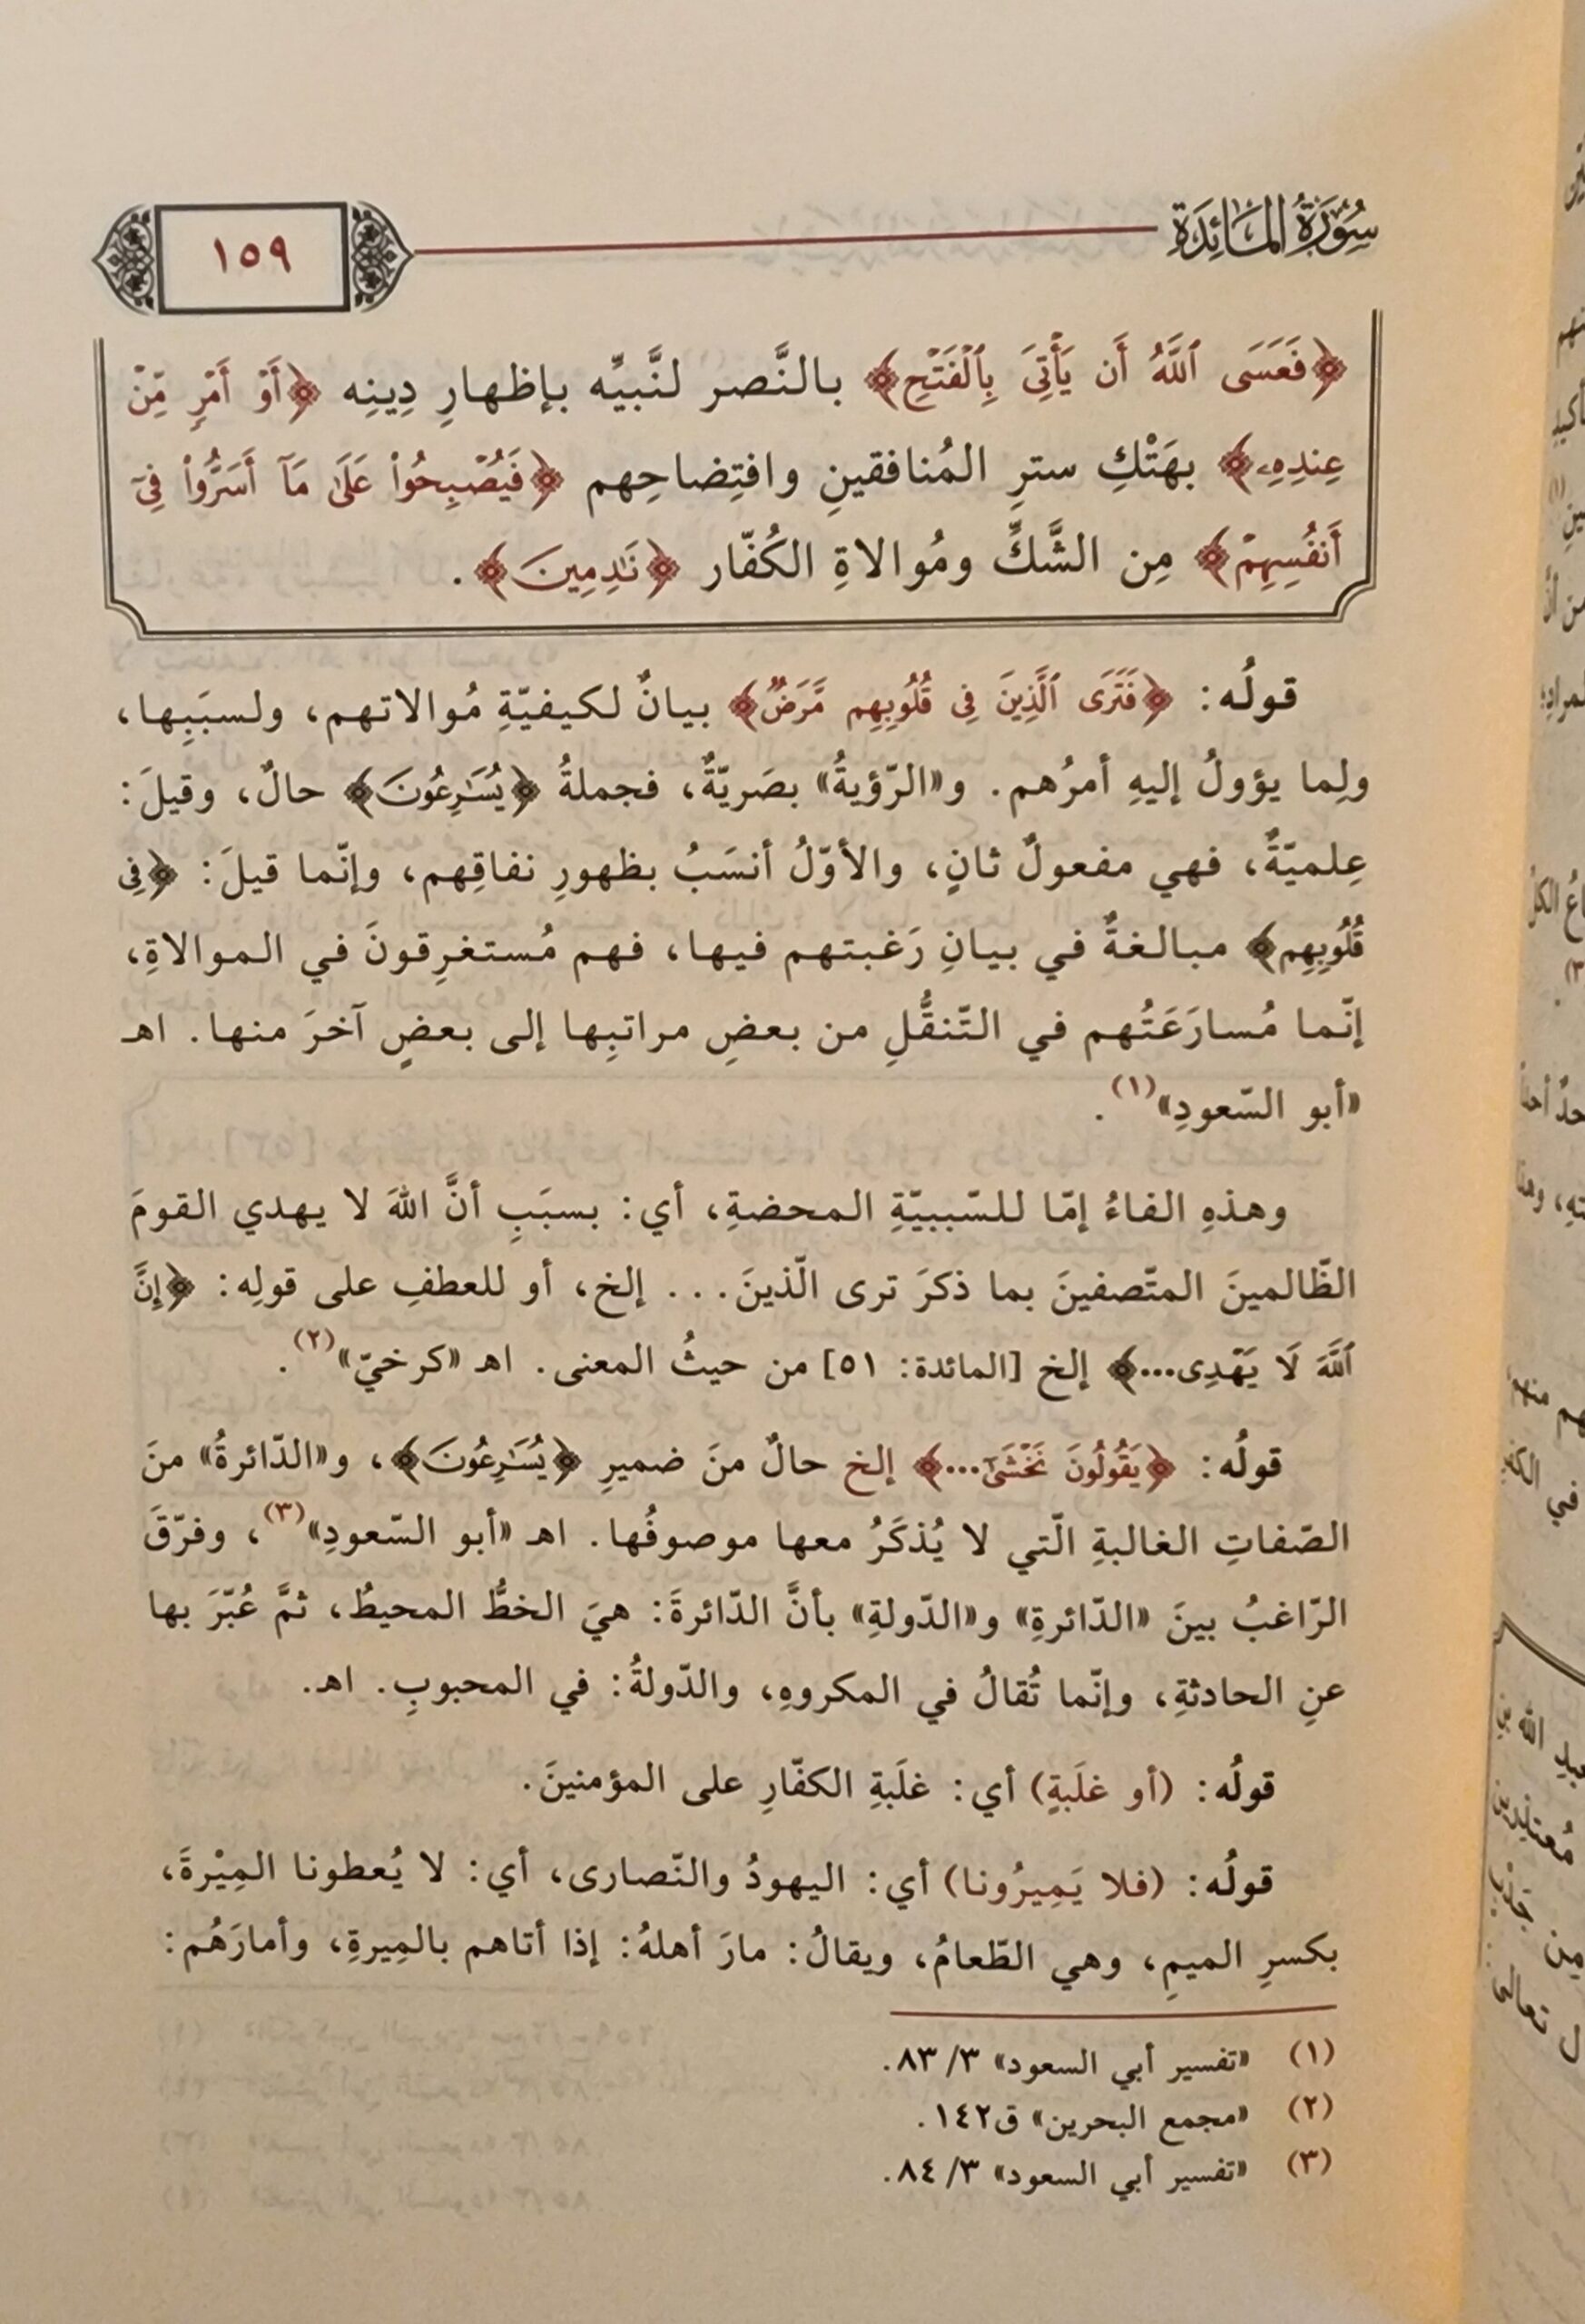 سُورَةُ المَائِدَةِ
١٥٩
﴿فَعَسَى ٱللَّهُ أَن يَأْتِىَ بِٱلْفَتْحِ﴾ بالنَّصر لنَّبيِّه بإظهارِ دِينِه ﴿أَوْ أَمْرٍ مِّنْ
عِندِهِۦ﴾ بهَتْكِ سترِ المُنافقينِ وافتِضاحِهم ﴿فَيُصْبِحُوا۟ عَلَىٰ مَآ أَسَرُّوا۟ فِىٓ
أَنفُسِهِمْ﴾ مِن الشَّكِّ ومُوالاةِ الكُفّار ﴿نَـٰدِمِينَ﴾.
قولُه: ﴿فَتَرَى ٱلَّذِينَ فِى قُلُوبِهِم مَّرَضٌ﴾ بيانٌ لكيفيّةِ مُوالاتهم، ولسبَبِها،
ولِما يؤولُ إليهِ أمرُهم. و«الرّؤيةُ» بصَريّةٌ، فجملةُ ﴿يُسَـٰرِعُونَ﴾ حالٌ، وقيلَ:
عِلميّةٌ، فهي مفعولٌ ثانٍ، والأوّلُ أنسَبُ بظهورِ نفاقِهم، وإنّما قيلَ: ﴿فِى
قُلُوبِهِم﴾ مبالغةٌ في بيانِ رَغبتهم فيها، فهم مُستغرِقونَ في الموالاةِ،
إنّما مُسارَعَتُهم في التّنقُّلِ من بعضِ مراتبِها إلى بعضٍ آخرَ منها. اهـ
«أبو السّعودِ»(١).
وهذهِ الفاءُ إمّا للسّببيّةِ المحضةِ، أي: بسبَبِ أنَّ اللهَ لا يهدي القومَ
الظّالمينَ المتّصفينَ بما ذكرَ ترى الّذينَ... إلخ، أو للعطفِ على قولِه: ﴿إِنَّ
ٱللَّهَ لَا يَهْدِى...﴾ إلخ [المائدة: ٥١] من حيثُ المعنى. اهـ «كرخيّ»(٢).
قولُه: ﴿يَقُولُونَ نَخْشَىٰٓ...﴾ إلخ حالٌ منَ ضميرِ ﴿يُسَـٰرِعُونَ﴾، و«الدّائرةُ» منَ
الصّفاتِ الغالبةِ الّتي لا يُذكَرُ معها موصوفُها. اهـ «أبو السّعودِ»(٣)، وفرّقَ
الرّاغبُ بينَ «الدّائرةِ» و«الدّولةِ» بأنَّ الدّائرةَ: هيَ الخطُّ المحيطُ، ثمَّ عُبّرَ بها
عنِ الحادثةِ، وإنّما تُقالُ في المكروهِ، والدّولةُ: في المحبوبِ. اهـ.
قولُه: (أو غلَبةٍ) أي: غلَبةِ الكفّارِ على المؤمنينَ.
قولُه: (فلا يَمِيرُونا) أي: اليهودُ والنّصارى، أي: لا يُعطونا المِيْرةَ،
بكسرِ الميمِ، وهي الطّعامُ، ويقالُ: مارَ أهلهُ: إذا أتاهم بالمِيرةِ، وأمارَهُم:
(١) «تفسير أبي السعود» ٣/ ٨٣.
(٢) «مجمع البحرين» ق١٤٢.
(٣) «تفسير أبي السعود» ٣/ ٨٤.